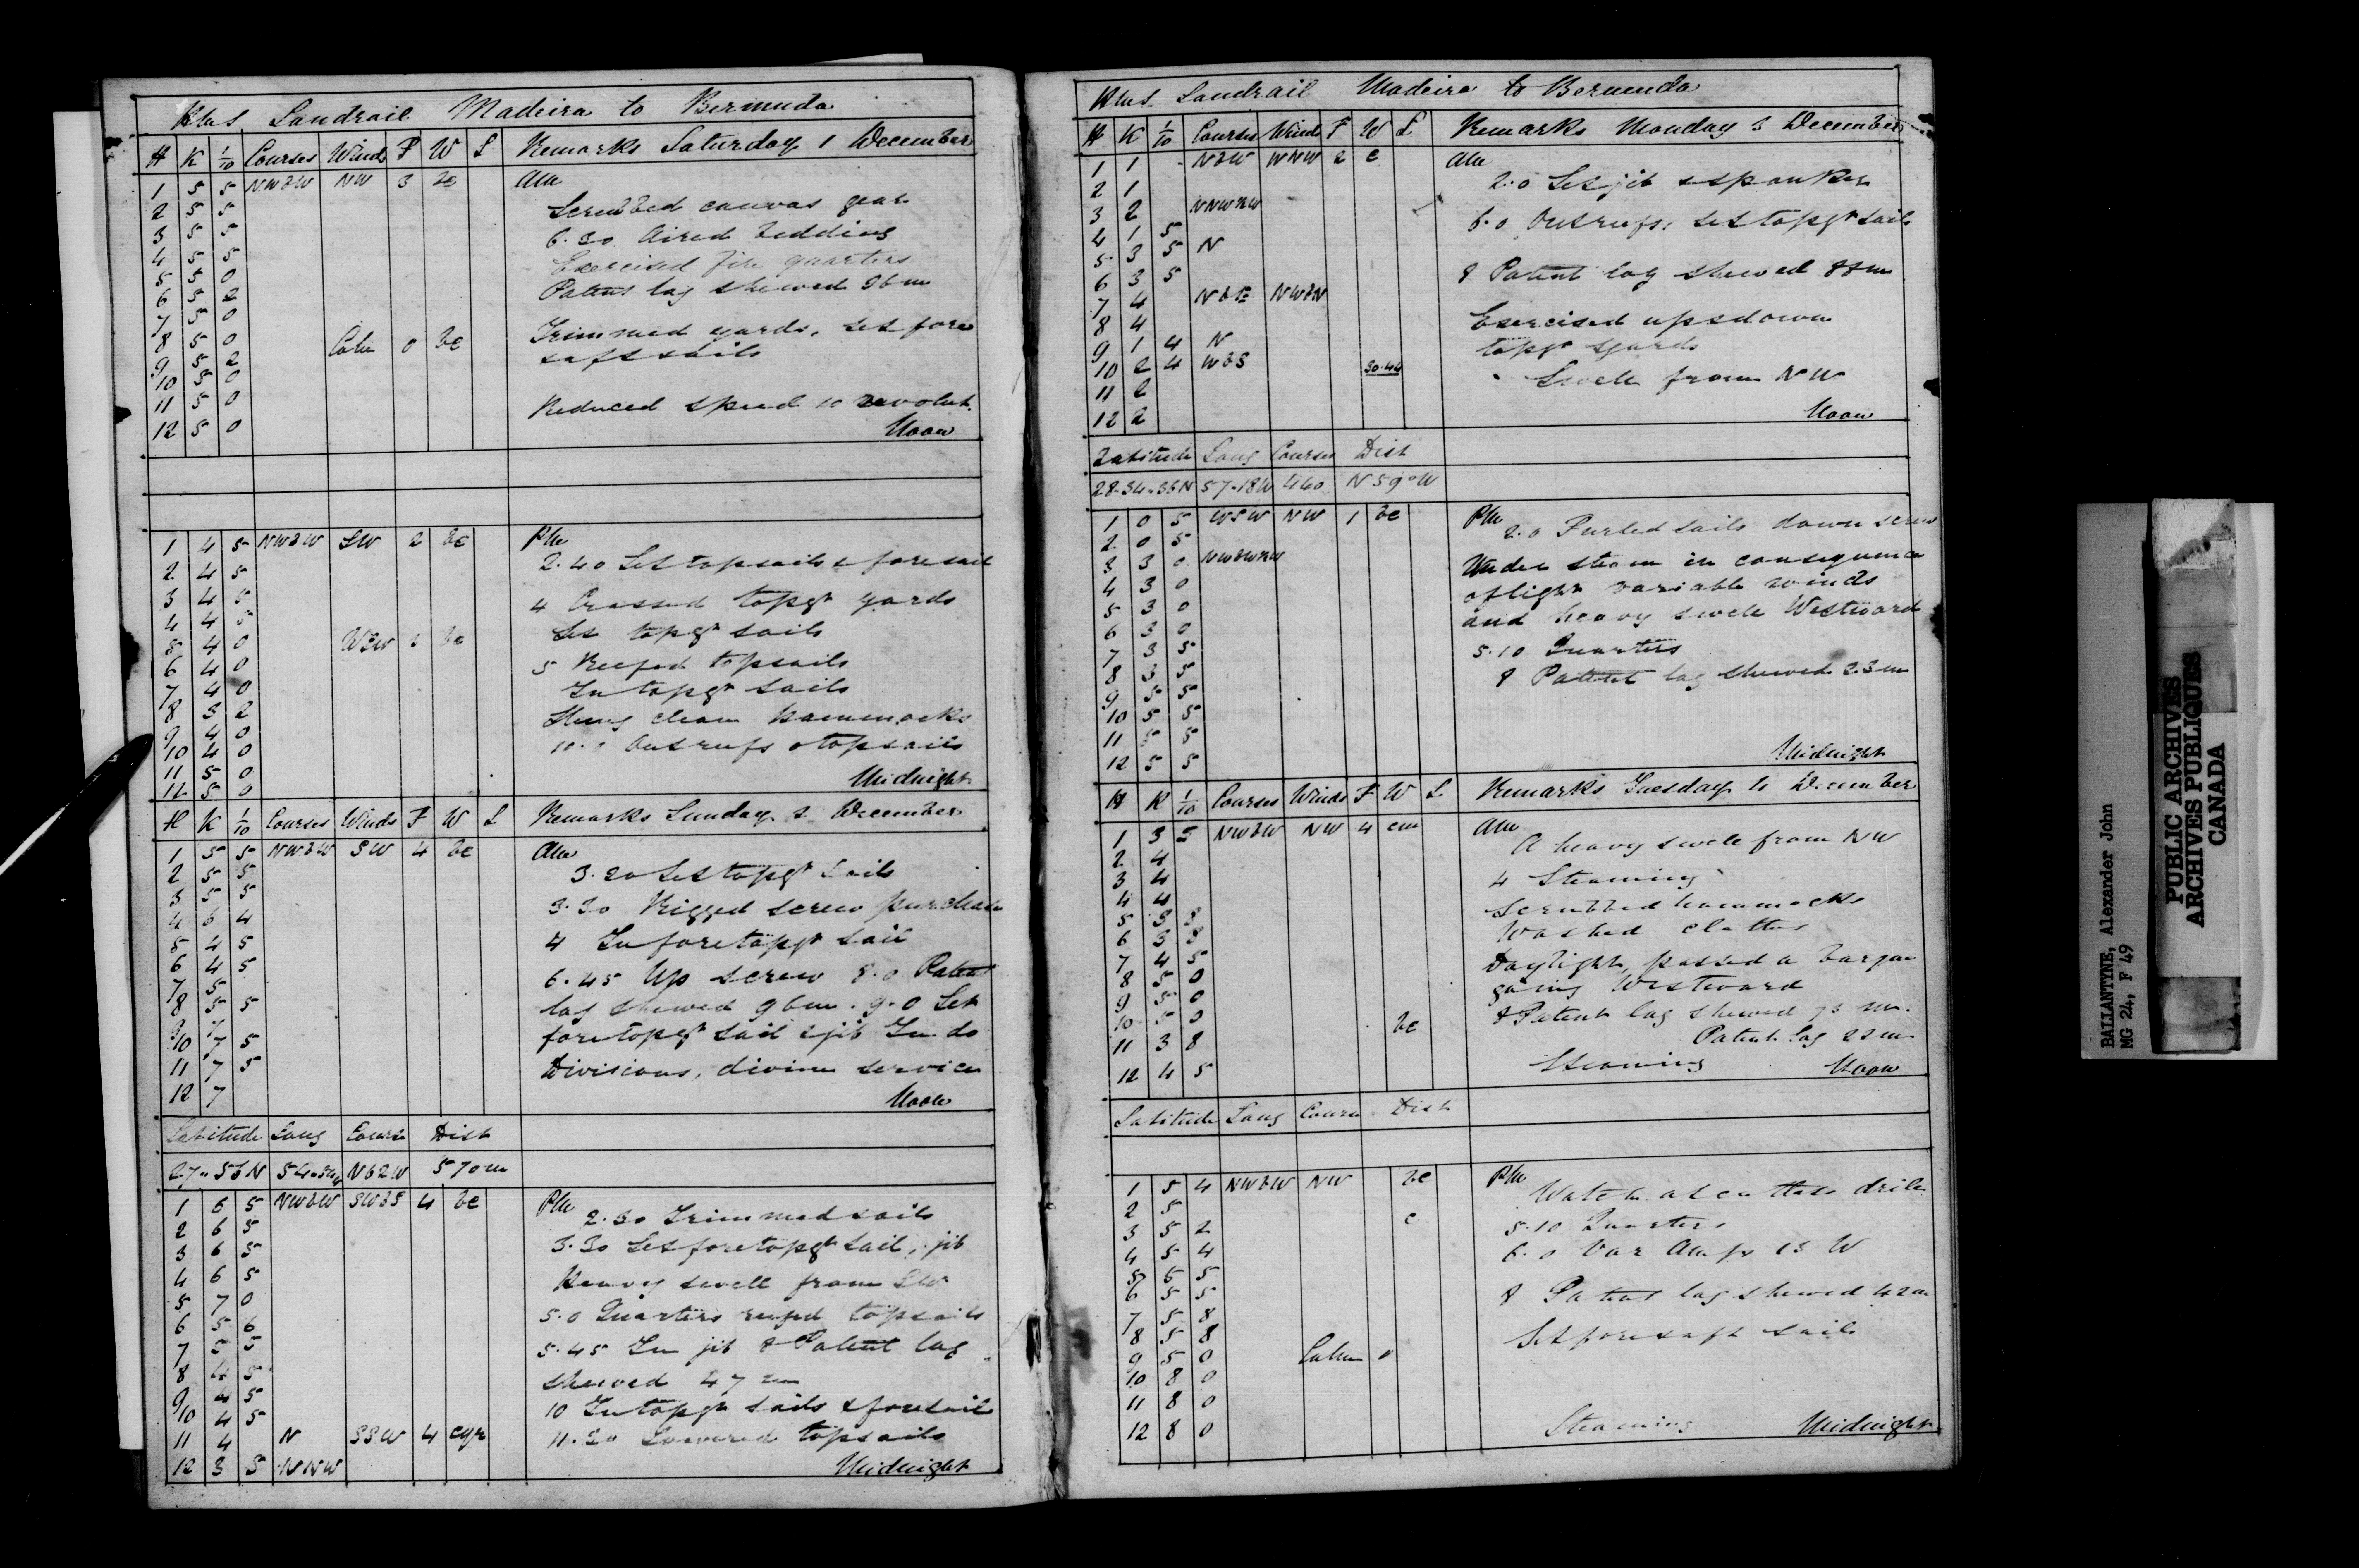 HMS Landrail Madeira to Bermuda
H K 1/10 Courses Winds F W L Remarks Saturday 1 December
1 5 5 NWBW NW 3 bc AM
2 5 5 Scrubbed canvas gear
3 5 5 6.30 Aired bedding
4 5 5 Exercised fire quarters
5 5 0 Patent log shewed 86m
6 5 2
7 5 0 Trimmed yards, set fore
8 5 0 Calm 0 bc & aft sails
9 5 2
10 5 0
11 5 0 Reduced speed 10 revolut.
12 5 0 Noon
1 4 5 NWBW SW 2 bc PM
2 4 5 2.40 Set topsails & foresail
3 4 5 4 Crossed topgt yards
4 4 5 Set topgt sails
5 4 0 WSW bc
6 4 0 5 Reefed topsails
7 4 0 In topgt sails
8 3 2 Hung clean hammocks
9 4 0
10 4 0 10.0 Out reefs topsails
11 5 0 Midnight
12 5 0
H K 1/10 Courses Winds F W L Remarks Sunday 2 December
1 5 5 NWBW SW 4 bc AM
2 5 5 3.20 Set topgt sails
3 5 5 3.30 Rigged screw purchase
4 5 4 4 In foretopgt sail
5 4 5
6 4 5 6.45 Up screw 8.0 Patent
7 5
8 5 5 log shewed 96m. 9.0 Set
9 7 foretopgt sail & jib In do
10 7 5
11 7 5 Divisions, divine service
12 7 Noon
Latitude Long Course Dist
27.56N N62W 570m
1 6 5 NWBW SWBS 4 bc PM
2 6 5 2.30 Trimmed sails
3 6 5 3.30 Set foretopgt sail, jib
4 6 5 Heavy swell from SW
5 7 0 5.0 Quarters reefed topsails
6 5 6
7 5 5 5.45 In jib 8 Patent log
8 4 5 shewed 47m
9 4 5
10 4 5 10 In topgt sails & foresail
11 4 N SSW 4 cqr 11.30 Lowered topsails
12 3 5 NNW Midnight
HMS Landrail Madeira to Bermuda
H K 1/10 Courses Winds F W L Remarks Monday 3 December
1 1 - NBW WNW 2 c AM
2 1 2.0 Set jib & spanker
3 2
4 1 5 6.0 Out reefs, set topgt sails
5 3 5 N
6 3 5 8 Patent log shewed 88m
7 4 NBE NWBN
8 4 Exercised up & down
9 1 4 N topgt yards
10 2 4 WBS 30.44 Swell from NW
11 2
12 2 Noon
Latitude Long Courses Dist
28.34.35N 57.18W 460 N59°W
1 0 5 WSW NW 1 bc PM
2 0 5 2.0 Furled sails down screw
3 3 0 Under steam in consequence
4 3 0 of light variable winds
5 3 0 and heavy swell Westward
6 3 0
7 3 5 5.10 Quarters
8 3 5 8 Patent log shewed 23m
9 5 5
10 5 5
11 5 5
12 5 5 Midnight
H K 1/10 Courses Winds F W L Remarks Tuesday 4 December
1 3 5 NWBW NW 4 cm AM
2 4 A heavy swell from NW
3 4 4 Steaming
4 4 Scrubbed hammocks
5 3 8
6 3 8 Washed clothes
7 4 5 Daylight, passed a barque
8 5 0 going Westward
9 5 0
10 5 0 bc 8 Patent log shewed 73 m.
11 3 8 Patent log 22m
12 4 5 Steaming Noon
Latitude Long Course Dist
1 5 4 NWBW NW bc PM
2 5 Watch at cutlass drill
3 5 2 c 5.10 Quarters
4 5 4 6.0 Var Amp 13 W
5 5 5
6 5 5 8 Patent log shewed 42m
7 5 8
8 5 8 Set fore & aft sails
9 5 0 Calm 0
10 8 0
11 8 0
12 8 0 Steaming Midnight
BALLANTYNE, Alexander John
MG 24, F 49
PUBLIC ARCHIVES
ARCHIVES PUBLIQUES
CANADA